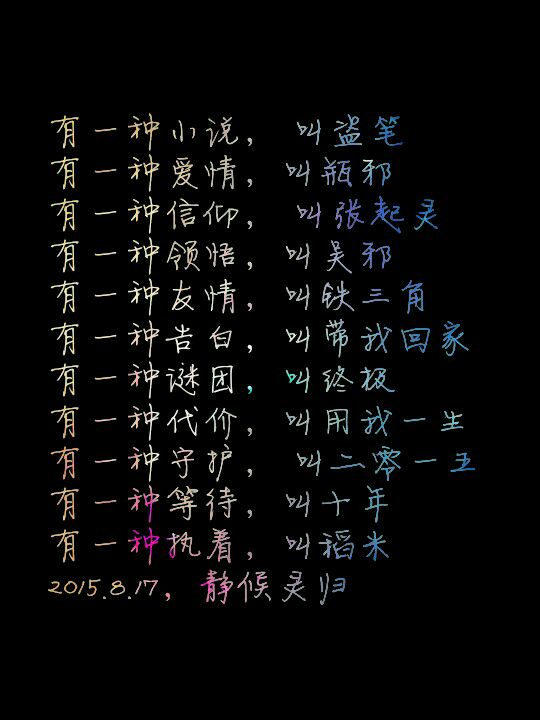 有一种小说，叫盗笔
有一种爱情，叫瓶邪
有一种信仰，叫张起灵
有一种领悟，叫吴邪
有一种友情，叫铁三角
有一种告白，叫带我回家
有一种谜团，叫终极
有一种代价，叫用我一生
有一种守护，叫二零一五
有一种等待，叫十年
有一种执着，叫稻米
2015.8.17，静候灵归